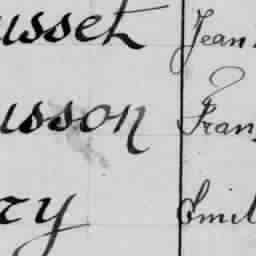 usset Jean
usson Fran
ry Emil